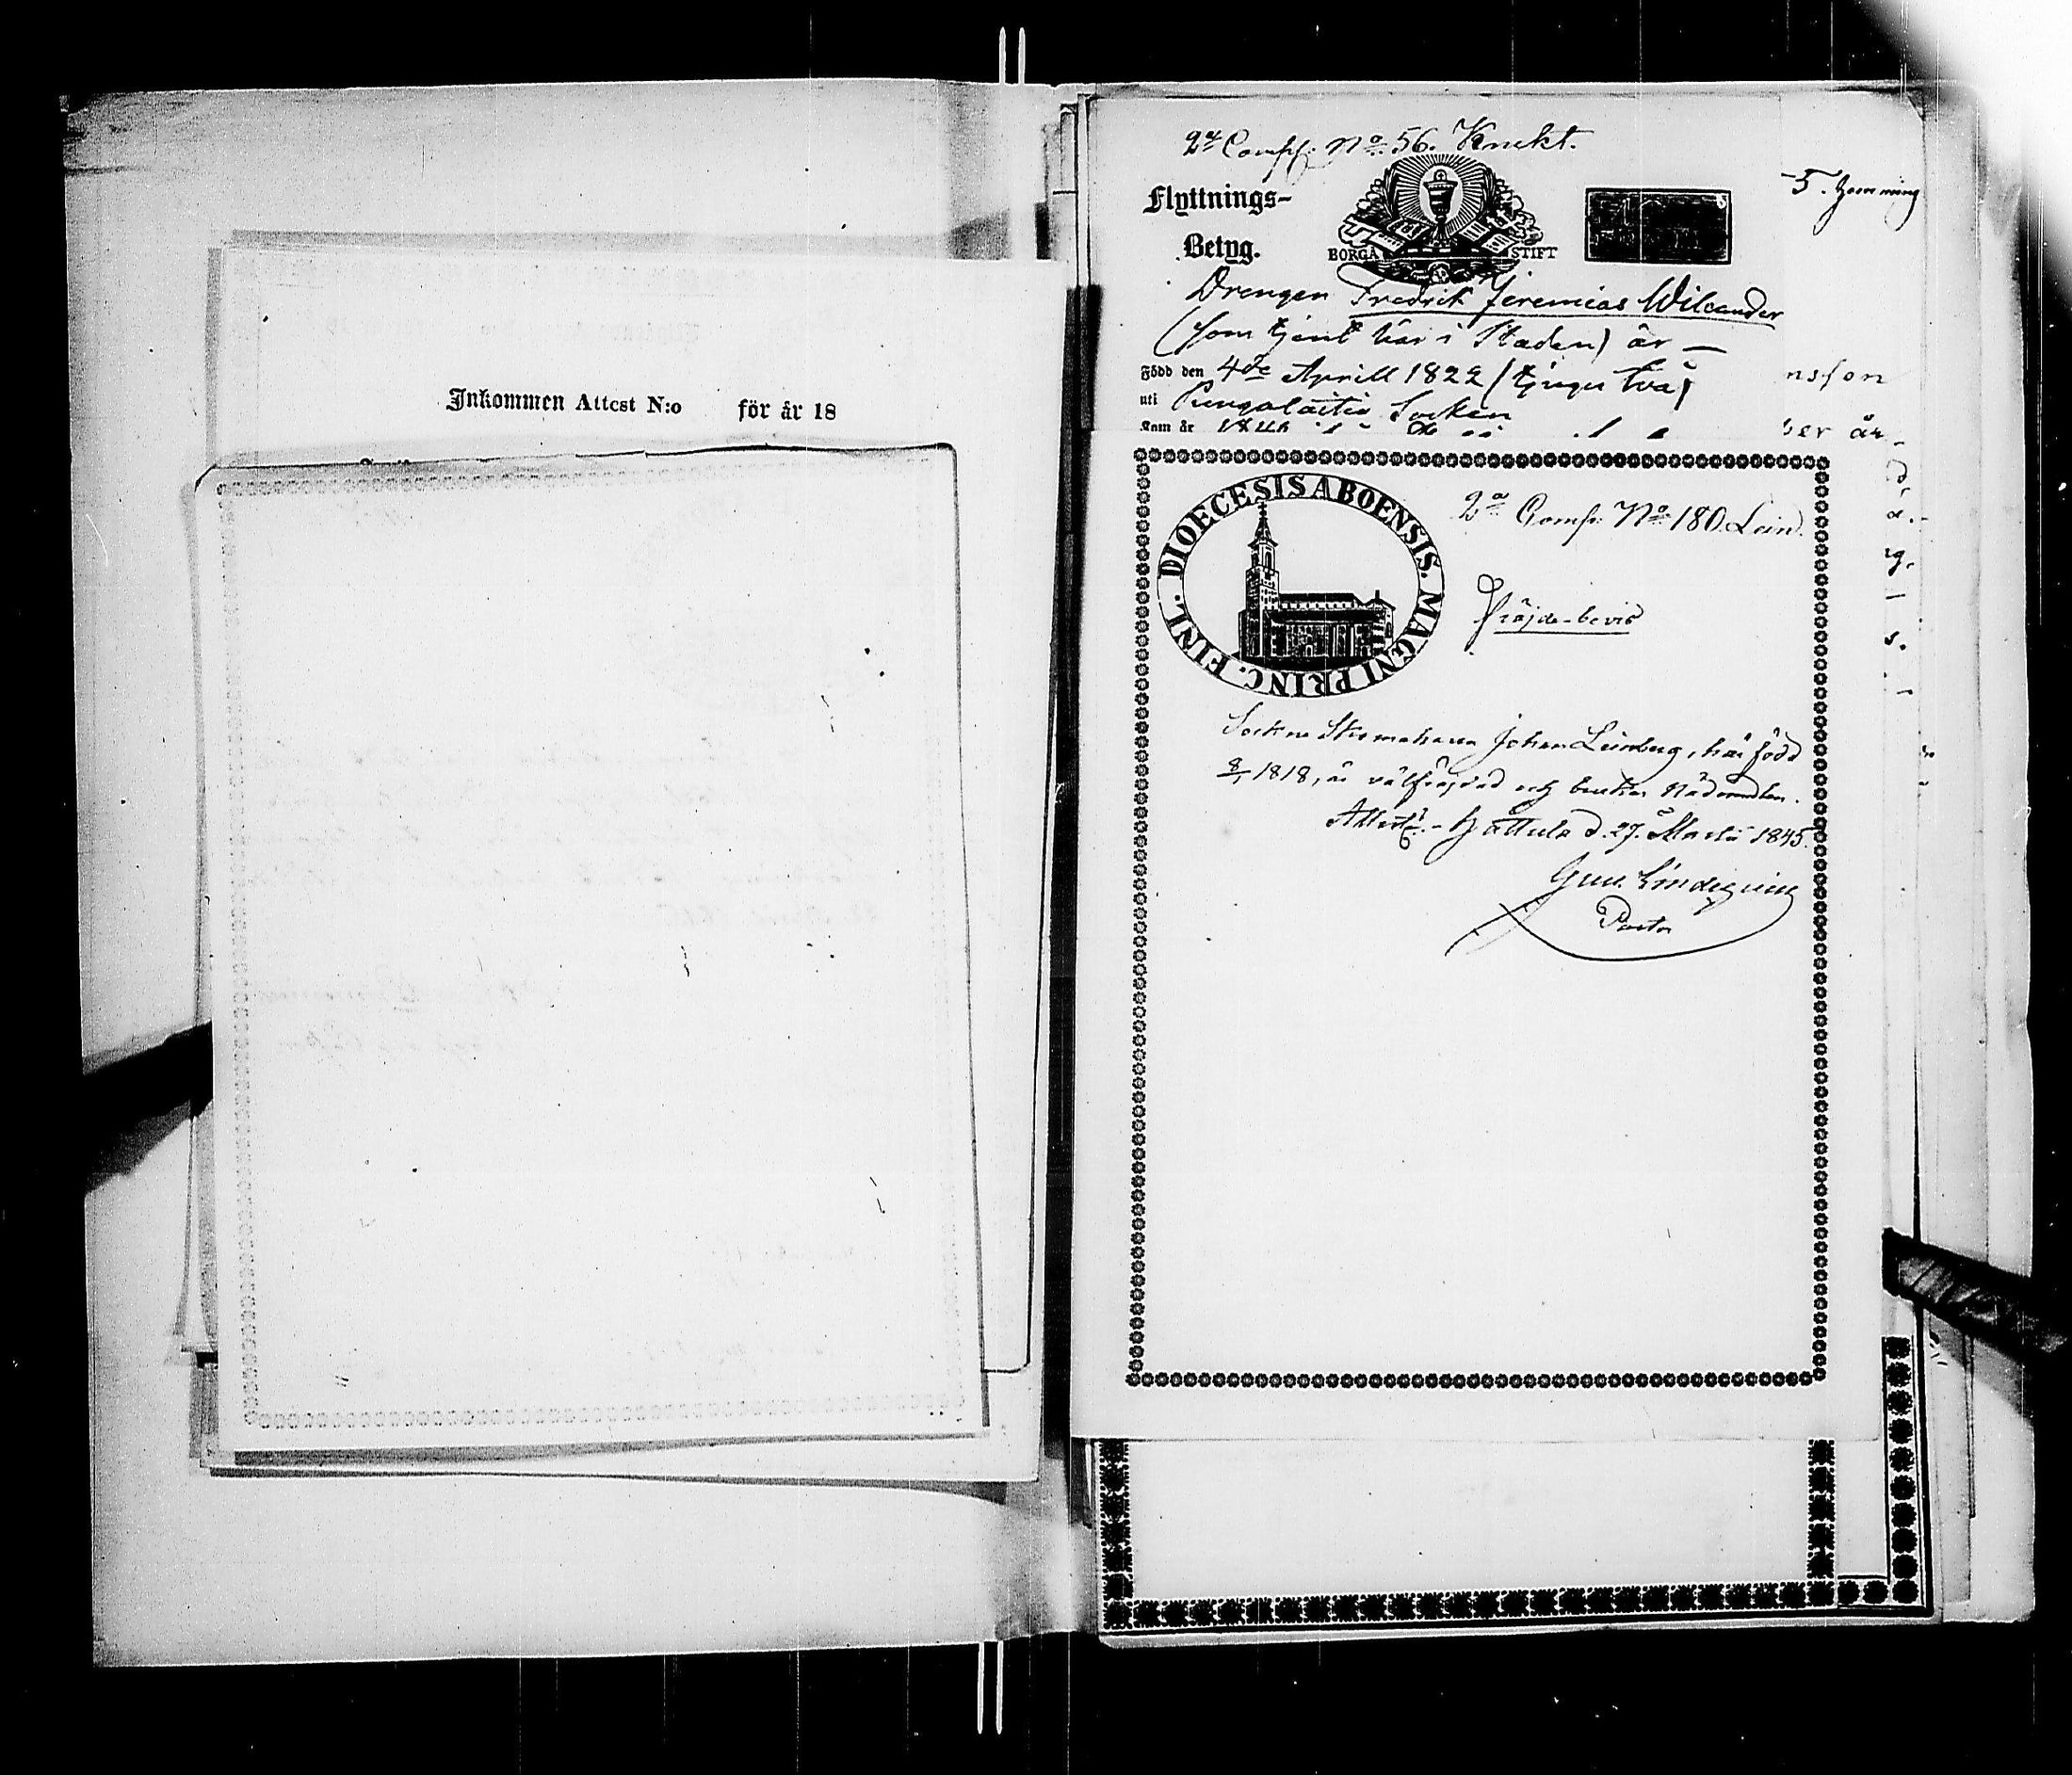 Inkommen Attest N:o för år 18
2a Comp: No 56. Knekt.
Flyttnings-
Betyg.
BORGÅ STIFT
Drengen Fredrik Jeremias Wileander
(som tjent här i Staden) är —
Född den 4de Aprill 1822 (tjugu två)
uti Pungalaitio Socken
Kom år
5.
nsson
ber år
DIOECESIS ABOENSIS. MAGNI PRINC. FINL.
2a Comp: No 180. Lein.
Fräjde-bevis
Sockne Skomakaren Johan Leinberg, här född
8/1 1818, är välfräjdad och brukar Nådemedlen.
Attest. - Hattula d. 27. Martii 1845.
Gust.
Pastor